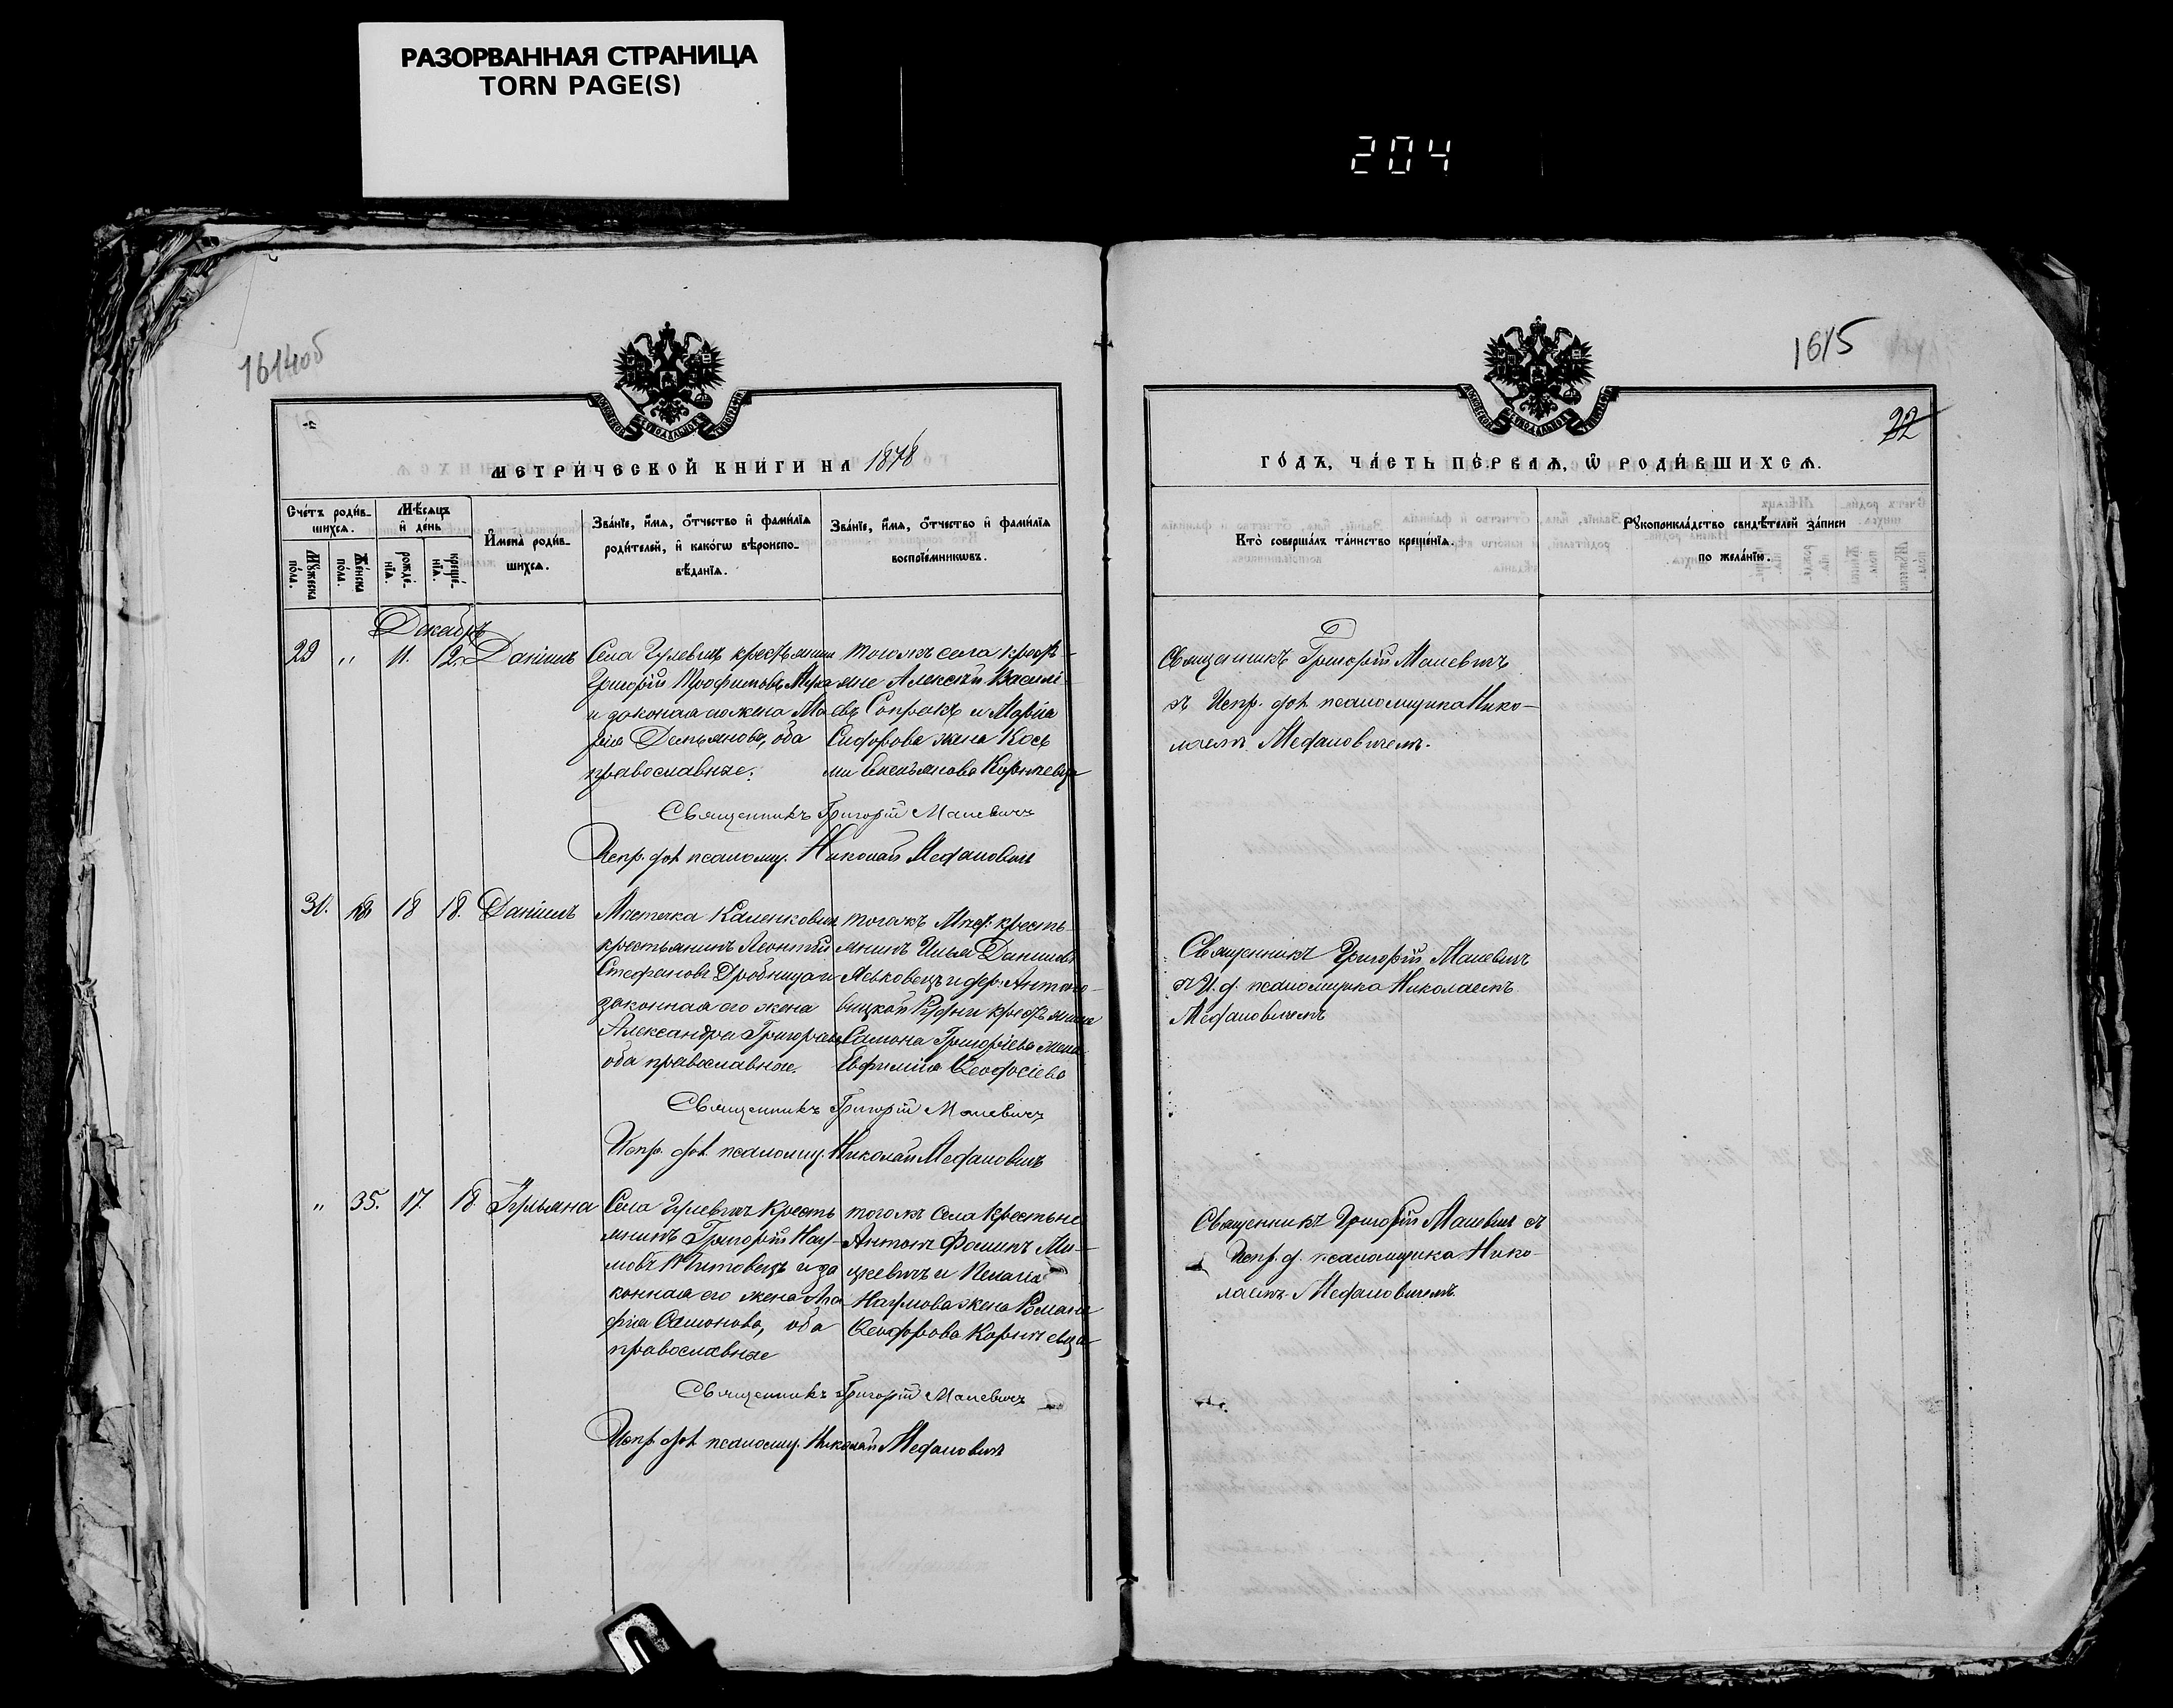 РАЗОРВАННАЯ СТРАНИЦА
TORN PAGE(S)
204
1614об
1615
22
МЕТРИ́ЧЕСКОЙ КНИ́ГИ НА 1878
ГО́ДЪ, ЧА́СТЬ ПЕ́РВАѦ, Ѿ РОДИ́ВШИХСѦ.
Сче́тъ роди́в-
шихся.
Мѣ́сяцъ
и҆ де́нь
И҆мена̀ роди́в-
шихся.
Зва́нїе, и҆́мя, о҆́тчество и҆ фами́лїя
роди́телей, и҆ како́гѡ вѣроиспо-
вѣ́данїя.
Зва́нїе, и҆́мя, о҆́тчество и҆ фами́лїя
воспрїе́мникѡвъ.
Му́жеска
по́ла.
Же́нска
по́ла.
рожде́-
нїя.
креще́-
нїя.
Кто̀ соверша́лъ та́инство креще́нїя.
Рукоприкла́дство свидѣ́телей за́писи
по жела́нїю.
Декабрь
29 " 11. 12. Даніилъ
Села Гулевичъ
Григорій Трофимовъ
и законная его жена Ма
рія Демьянова, оба
православные.
тогожъ села крест-
яне Алексѣй Василі-
евъ Сопрокъ и Марія
Сидорова жена Кось
мы Емельянова Корытевца
Священникъ Григорій Малевичъ
съ Испр. дол. псаломщика Нико-
лаемъ Мефановичемъ.
Священникъ Григорій Малевичъ
Испр. дол. псаломщ. Николай Мефановичъ
30. 18 18. Даніилъ
Мѣстечка Каленковичъ
крестьянинъ Леонтій
Стефановъ Дробница и
законная его жена
Александра Григорьева
оба православные.
тогожъ Мѣст. кресть-
янинъ Илья Даниловъ
Григорьева жена
Евфимія Ѳеодосіева
Священникъ Григорій Малевичъ
съ И. д. псаломщика Николаемъ
Мефановичемъ
Священникъ Григорій Малевичъ
Испр. дол. псаломщ. Николай Мефановичъ
" 35. 17. 18. Іульяна
Села Гулевичъ кресть
янинъ Григорій Нау-
мовъ и за
конная его жена Ага
фія Самонова, оба
православные
тогожъ села крестьяне
Антонъ Фоминъ Ми-
цкевичъ и Пелагія
Наумова жена Романа
Ѳеодорова Корытевца
Священникъ Григорій Малевичъ съ
Испр. д. псаломщика Нико-
лаемъ Мефановичемъ.
Священникъ Григорій Малевичъ
Испр. дол. псаломщ. Николай Мефановичъ